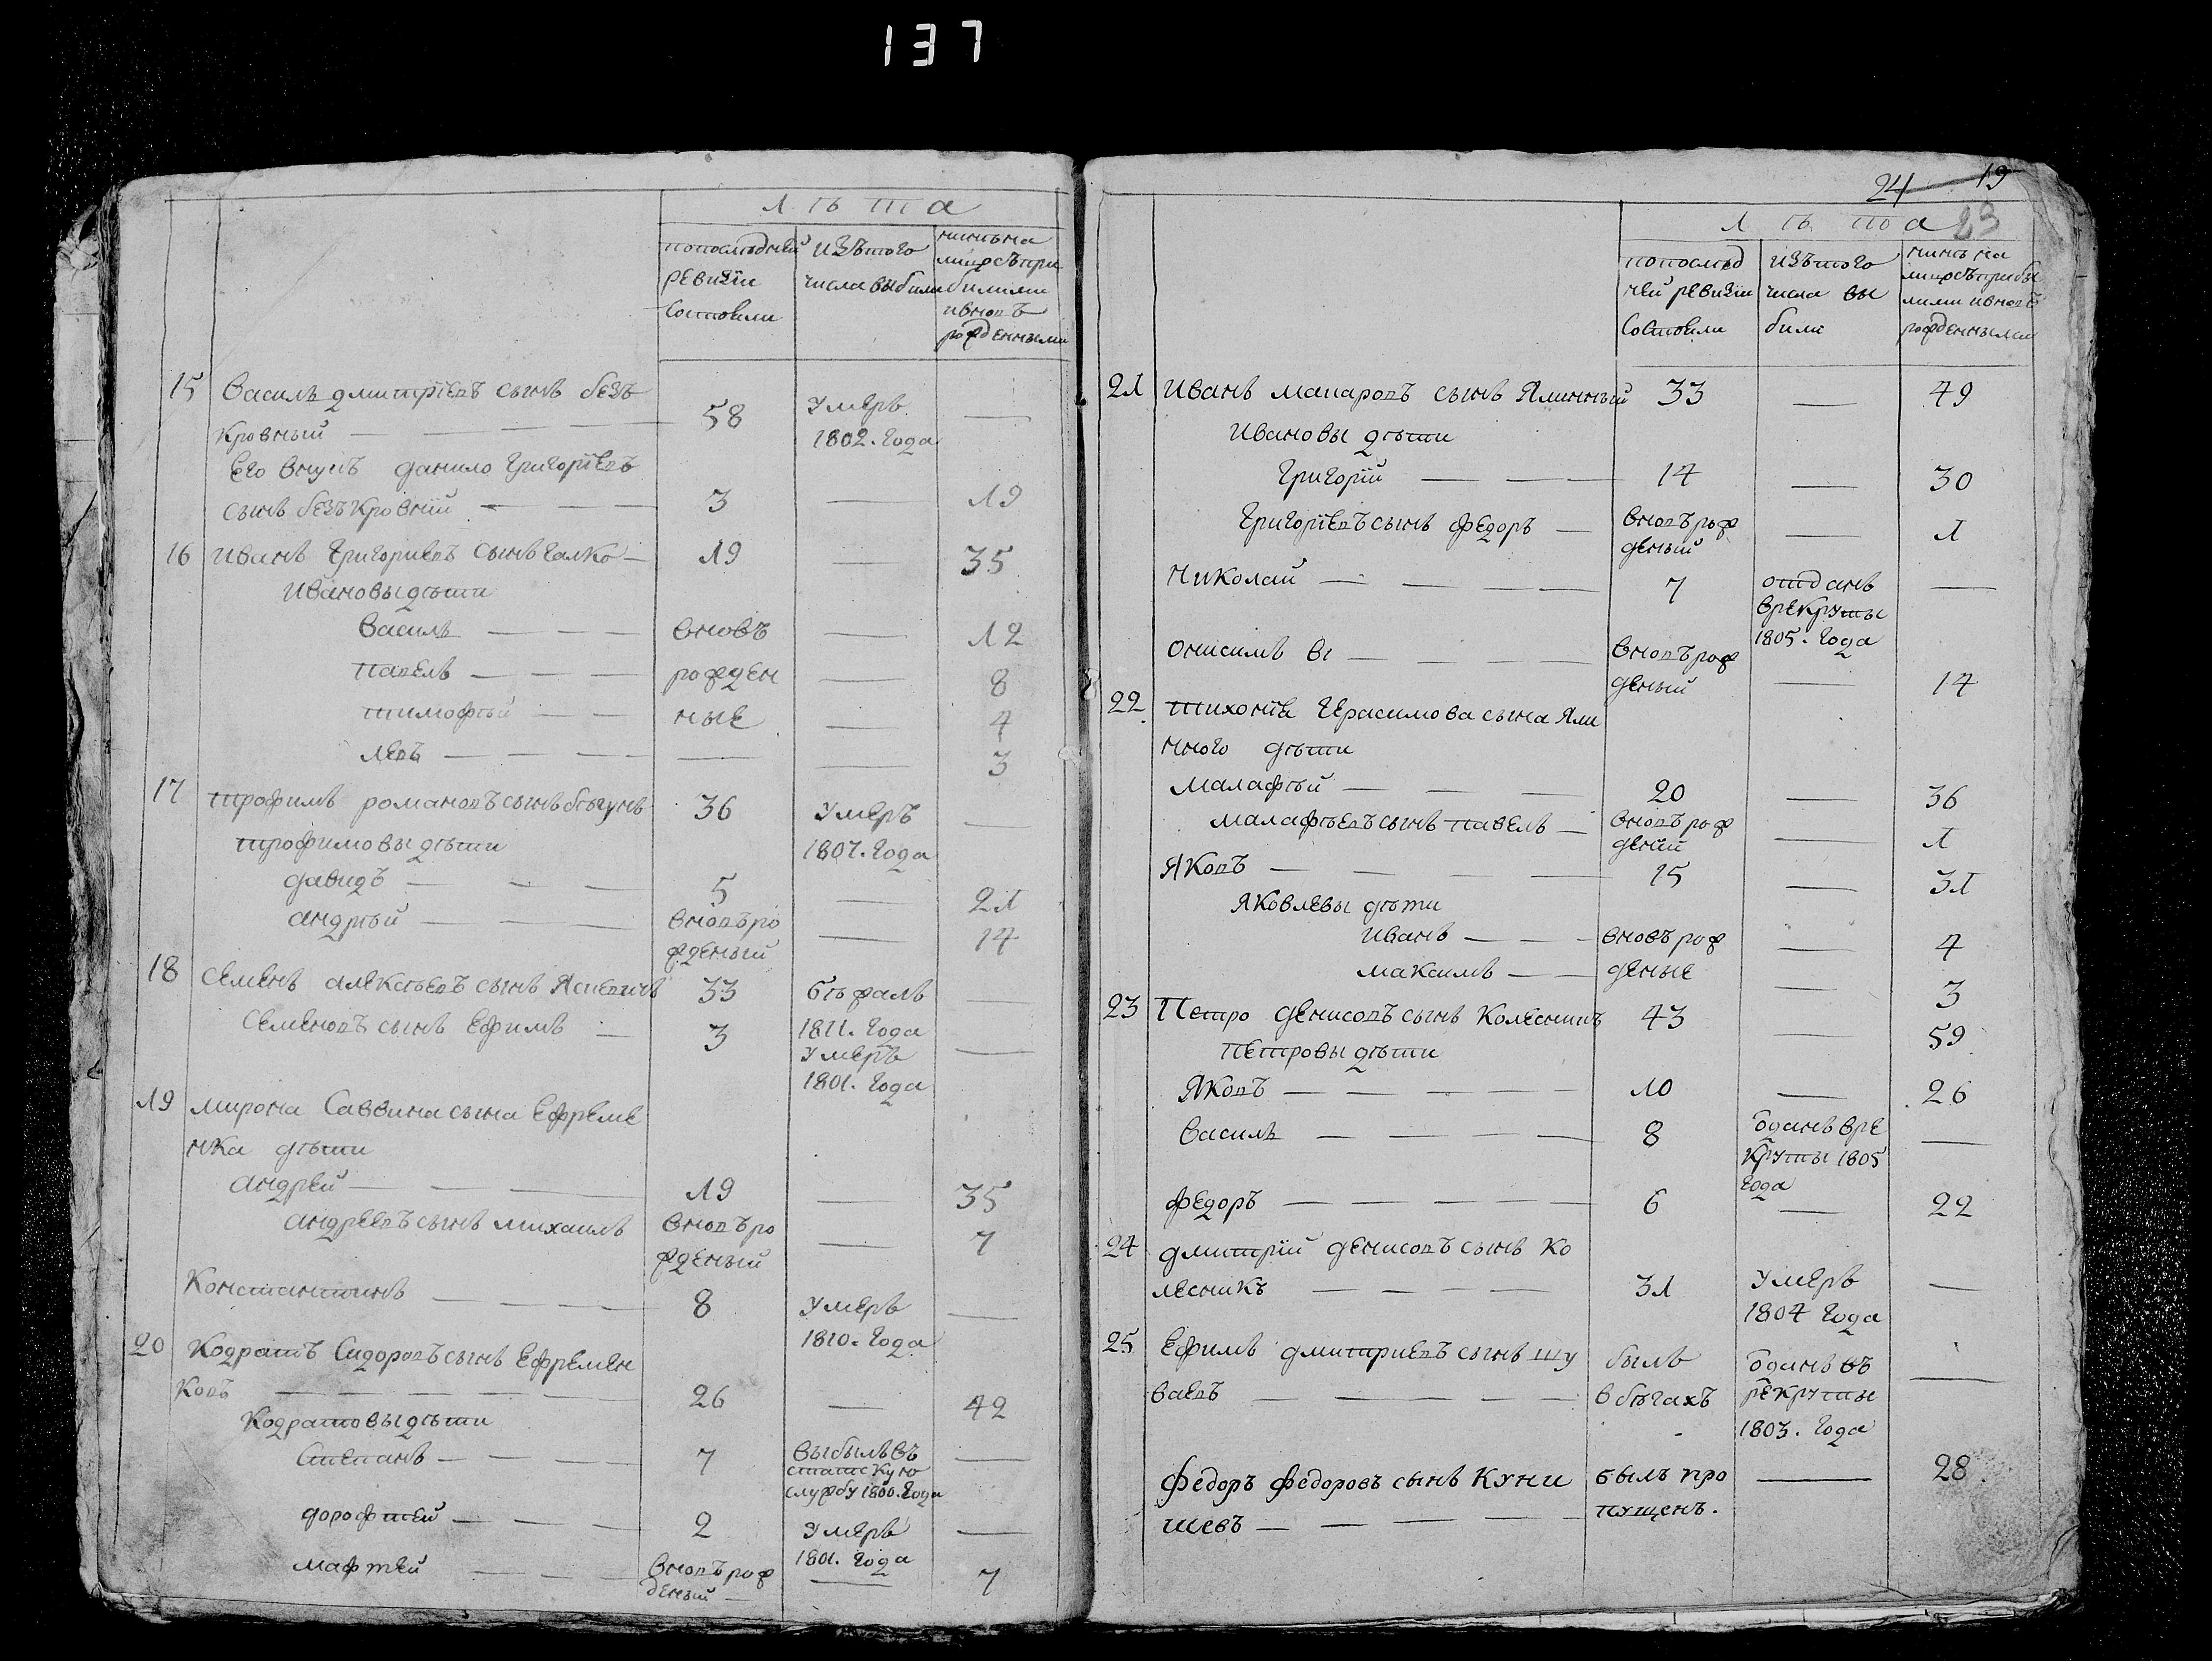 137
лѣта
попослѣдней ревизіи состояли
изътого числа выбили
нинѣ на лицо съ прибилими и вновъ рожденными
15 Василь дмитріевъ сынъ безъ
кровный — 58 Умеръ 1802. года —
Его внукъ данило григоріевъ
сынъ безъкровній — 3 — 19
16 Иванъ григориевъ сынъ галко — 19 — 35
Ивановы дѣти
Василь — вновъ — 12
павелъ — рожден — 8
тимофѣй — ные — 4
левъ — — — 3
17 трофимъ романовъ сынъ бѣгунъ 36 Умеръ 1807. года —
трофимовы дѣти
давидъ — 5 — 21
андрѣй — вновъ рожденый — 14
18 Семенъ алексѣевъ сынъ 33 бѣжалъ 1811. года —
Семеновъ сынъ Ефимъ — 3 Умеръ 1801. года —
19 мирона Саввина сына Ефреме
нка дѣти
андрей — 19 — 35
андреевъ сынъ михаилъ вновъ рожденый — 7
Константинъ — 8 Умеръ 1810. года —
20 Кодратъ Сидоровъ сынъ Ефремен
ковъ — 26 — 42
Кодратовы дѣти
Степанъ — 7 выбылъ въ статскую службу 1800. года —
дорофтей — 2 Умеръ 1801. года —
мафтей — вновъ рожденый — 7
24 19
23
лѣта
попослед ней ревизіи состояли
изътого числа вы били
нинѣ на лицо съ прибы лими и вновъ рожденными
21 Иванъ макаровъ сынъ Ялинный 33 — 49
Ивановы дѣти
григорій — 14 — 30
григоріевъ сынъ федоръ — вновъ рожденый — 1
николай — 7 отданъ врекруты 1805. года —
онисимъ вг — вновъ рожденый — 14
22 тихонія герасимова сына Яли
нного дѣти
малафѣй — 20 — 36
малафѣевъ сынъ павелъ — вновъ рожденій — 1
Яковъ — 15 — 31
Яковлевы дѣти
иванъ — вновъ рож — 4
максимъ — деные — 3
23 Петро денисовъ сынъ Колесникъ 43 — 59
петровы дѣти
Яковъ — 10 — 26
Василь — 8 ѿданъ вре круты 1805 года —
федоръ — 6 — 22
24 дмитрій денисовъ сынъ Ко
лесникъ — 31 Умеръ 1804 года —
25 Ефимъ дмитриевъ сынъ шу
ваевъ — былъ в бѣгахъ ѿданъ въ рекруты 1803. года —
Федоръ Федоровъ сынъ Куни
шевъ — былъ про пущенъ. — 28